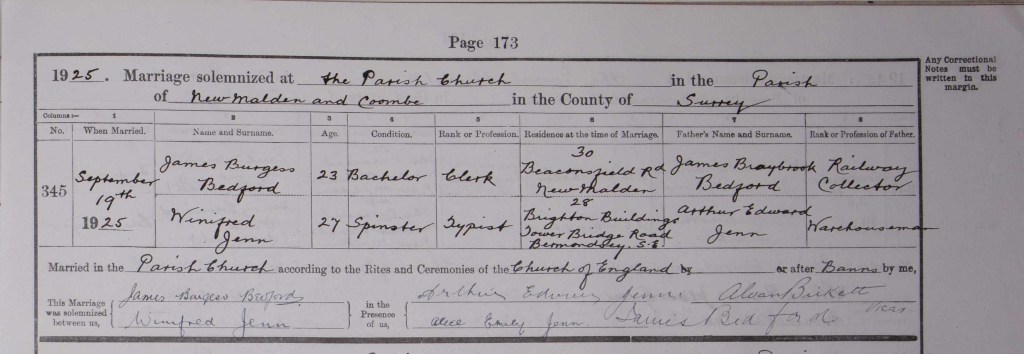 Page 173
Any Correctional
Notes must be
written in this
margin.
1925. Marriage solemnized at the Parish Church in the Parish
of New Malden and Coombe in the County of Surrey
Columns :— 1 2 3 4 5 6 7 8
No. When Married. Name and Surname. Age. Condition. Rank or Profession. Residence at the time of Marriage. Father's Name and Surname. Rank or Profession of Father.
345
September
19th
1925
James Burgess
Bedford
23 Bachelor Clerk
30
Beaconsfield Rd
New Malden
James Braybrook
Bedford
Railway
Collector
Winifred
Jenn
27 Spinster Typist
28
Brighton Buildings
Tower Bridge Road
Bermondsey. S.E.
Arthur Edward
Jenn
Warehouseman
Married in the Parish Church according to the Rites and Ceremonies of the Church of England by or after Banns by me,
This Marriage
was solemnized
between us,
James Burgess Bedford
Winifred Jenn
in the
Presence
of us,
Arthur Edward Jenn
Alice Emily Jenn.
James Bedford
Alvan Birkett
Vicar